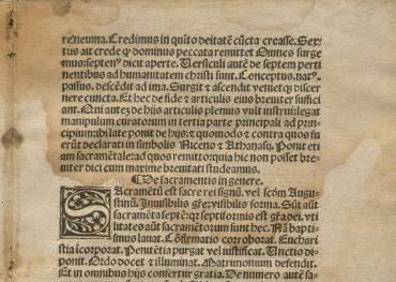 reneuma. Credimus in quīto deitatē cūcta creasse. Sex⸗
tus ait crede ꝙ dominus peccata remittet Omnes surge
mus: septenꝰ dicit aperte. Uersiculi autē de septem perti
nentibus ad humanitatem christi sunt. Conceptus. natꝰ.
passus. descēdit ad ima. Surgit ⁊ ascendit veniet qꝫ discer
nere cuncta. Et hec de fide ⁊ articulis eius breuiter suffici
ant. Qui autē de hijs articulis plenius vult instrui: legat
manipulum curatorum in tertia parte principali ad prin
cipium: ibi late ponit de hijs: ⁊ quomodo ⁊ contra quos fu
erūt declarati in simbolis Niceno ⁊ Athanasij. Ponit eti
am sacramētaler ad quos remitto: quia hic non posset bre⸗
uiter dici cum maxime breuitati studeamus.
¶ De sacramentis in genere.
SAcramētū est sacre rei signū. vel scōm Augu⸗
stinū. Inuisibilis grē visibilis forma. Sūt aūt
sacramēta septē: qꝛ septiformis est grā dei. vti
litates aūt sacramētorum sunt hec. Nā bapti⸗
smus lauat. Cōfirmatio corroborat. Euchari
stia īcorporat. Penitētia purgat vel iustificat. Unctio di⸗
ponit. Ordo docet ⁊ illuminat. Matrimonium defendit.
Et in omnibus hijs confertur gratia. De numero autē sa⸗